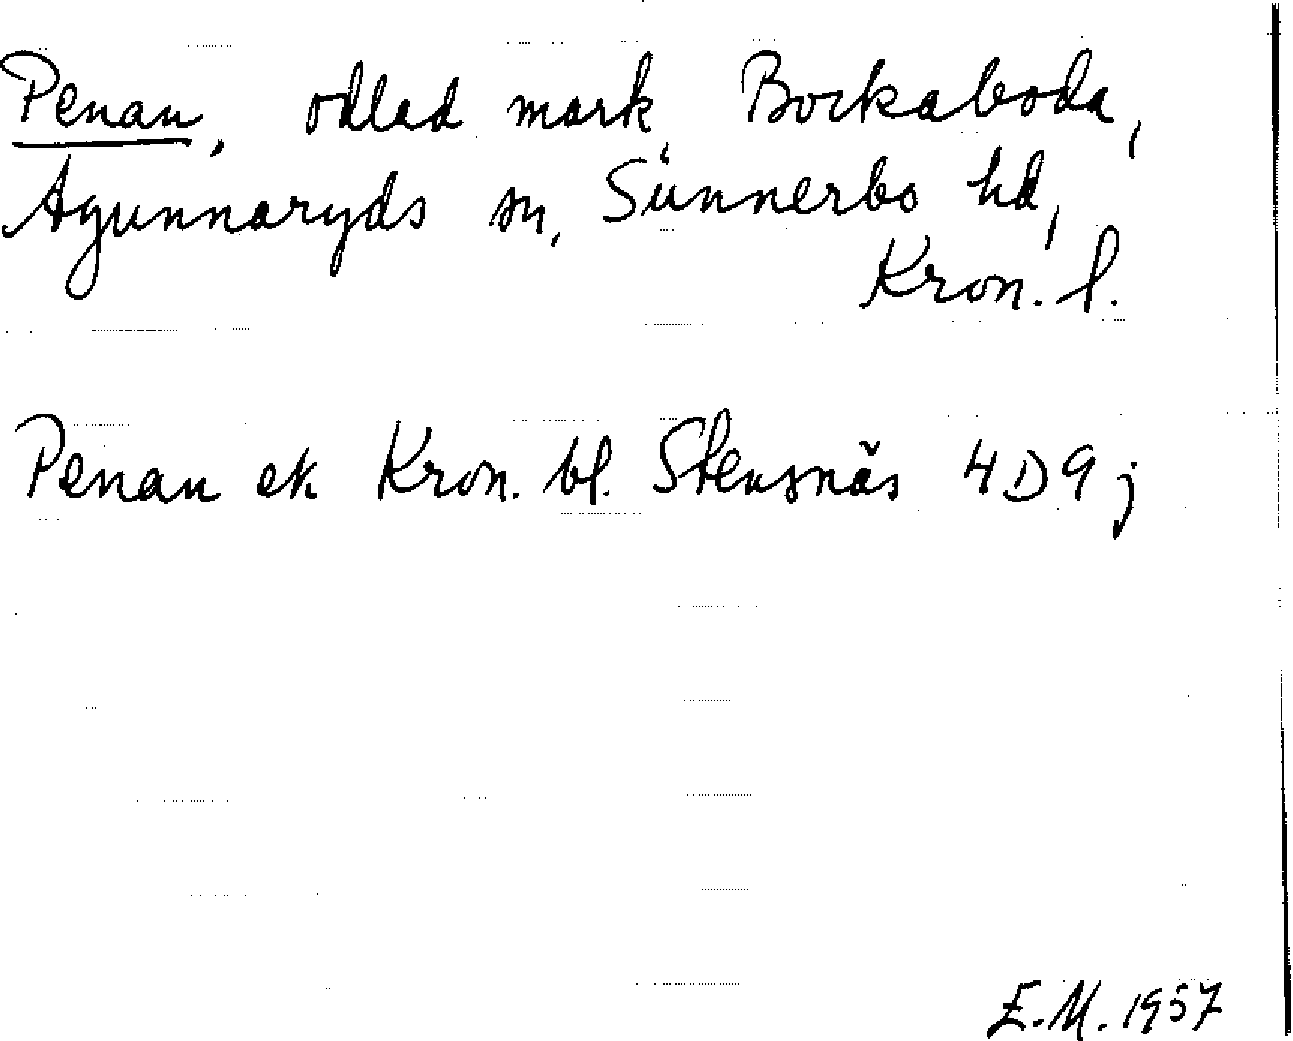 Penan, odlad mark, Bockaboda,
Agunnaryds sn, Sunnerbo hd,
Kron. l.
Penan ek Kron. bl. Stensnäs 4D9j
E.M. 1957